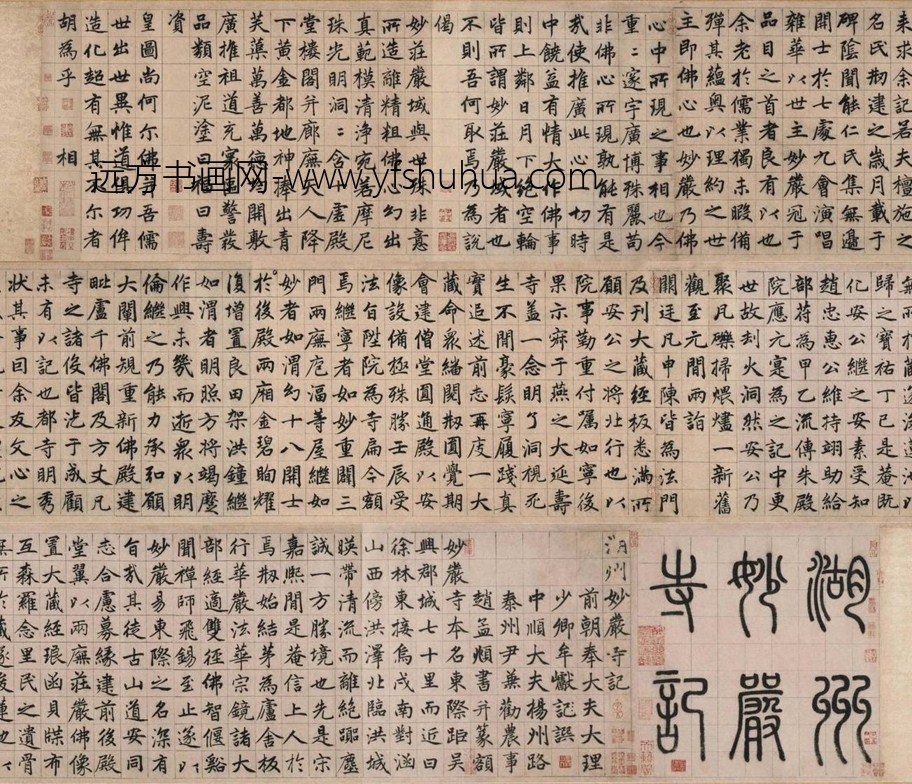 湖州
妙嚴
寺記
湖州妙嚴寺記
前朝奉大夫大理
少卿牟巘記譔
中順大夫揚州路
泰州尹兼勸農事
趙孟頫書并篆額
妙嚴寺本名東際距吳
興郡城七十里而近曰
徐林東接烏戍南對涵
山西傍洪澤北臨洪城
暎帶清流而離絕囂塵
誠一方勝境也先是宋
嘉熙間是菴信上人於
焉刱始結茅為廬舍板
行華嚴法華宗鏡諸大
部經適雙徑佛智偃谿
聞禪師飛錫至止遂以
妙嚴易東際之名深有
旨哉其徒古山道安同
志合慮募緣建前後殿
堂翼以兩廡莊嚴佛像
置大藏經琅函貝牒布
互森羅念里民之遺骨
無所於藏遂
歸之寶祐丁巳是菴既
化安公繼之安素受知
趙忠惠公維持翊助給
部苻為甲乙流傳朱殿
院應元實為之記中更
世故刧火洞然安公乃
聚凡礫掃煨燼一新舊
觀至元間兩詣
闕廷凡申陳皆為法門
及刊大藏經板悉滿所
願安公之將北行也以
院事勤重付囑如寧後
果示寂于燕之大延壽
寺蓋一念明了洞視死
生不間豪髮寧履踐真
實追述前志再庋一大
藏命衆繙閱刱圓覺期
會建僧堂圓通殿以安
像設備極殊勝壬辰受
法旨陞院為寺扁今額
焉繼寧者如妙重闢三
門兩廡庖湢等屋繼如
妙者如渭幻十八開士
於後殿兩廂金碧眴耀
復增置良田架洪鍾繼
如渭者明照方將竭蹙
作興未幾而逝衆以明
倫繼之乃能力承弘願
大闡前規重新佛殿建
毗盧千佛閣及方丈凡
寺之諸役汔于成顧
未有記也都寺明秀
狀其事曰余友文心之
來求余記若夫檀施之
名氏刱建之歲月載于
碑陰聞能仁氏集無邊
開士於七處九會演唱
雜華以世主妙嚴冠于
品目之首者良有以也
余老於儒業獨未暇備
殫其蘊奧以理約之世
主即佛心也妙嚴乃佛
心中所現之事相也今
重二邃宇廣博殊麗苟
非佛心所現孰能有是
哉使推廣此心一切時
中饒益有情大作佛事
則上鄰日月下絕空輪
皆所謂妙莊嚴域也
不則吾何取焉乃為說
偈
妙莊嚴域與世殊非意
所造離精粗佛幻出
真範模清淨宛若摩尼
珠光明洞二含虛殿
堂樓閣并廊廡天人降
下黃金都地神捧出青
芙蕖萬善萬德所開敷
廣推祖道充寰區警發
品類空泥塗曰福曰壽
資
皇圖尚何尔佛尊吾儒
世出世異惟道俱功侔
造化超有無其不尔者
胡為乎　相
远方书画网-www.yfshuhua.com